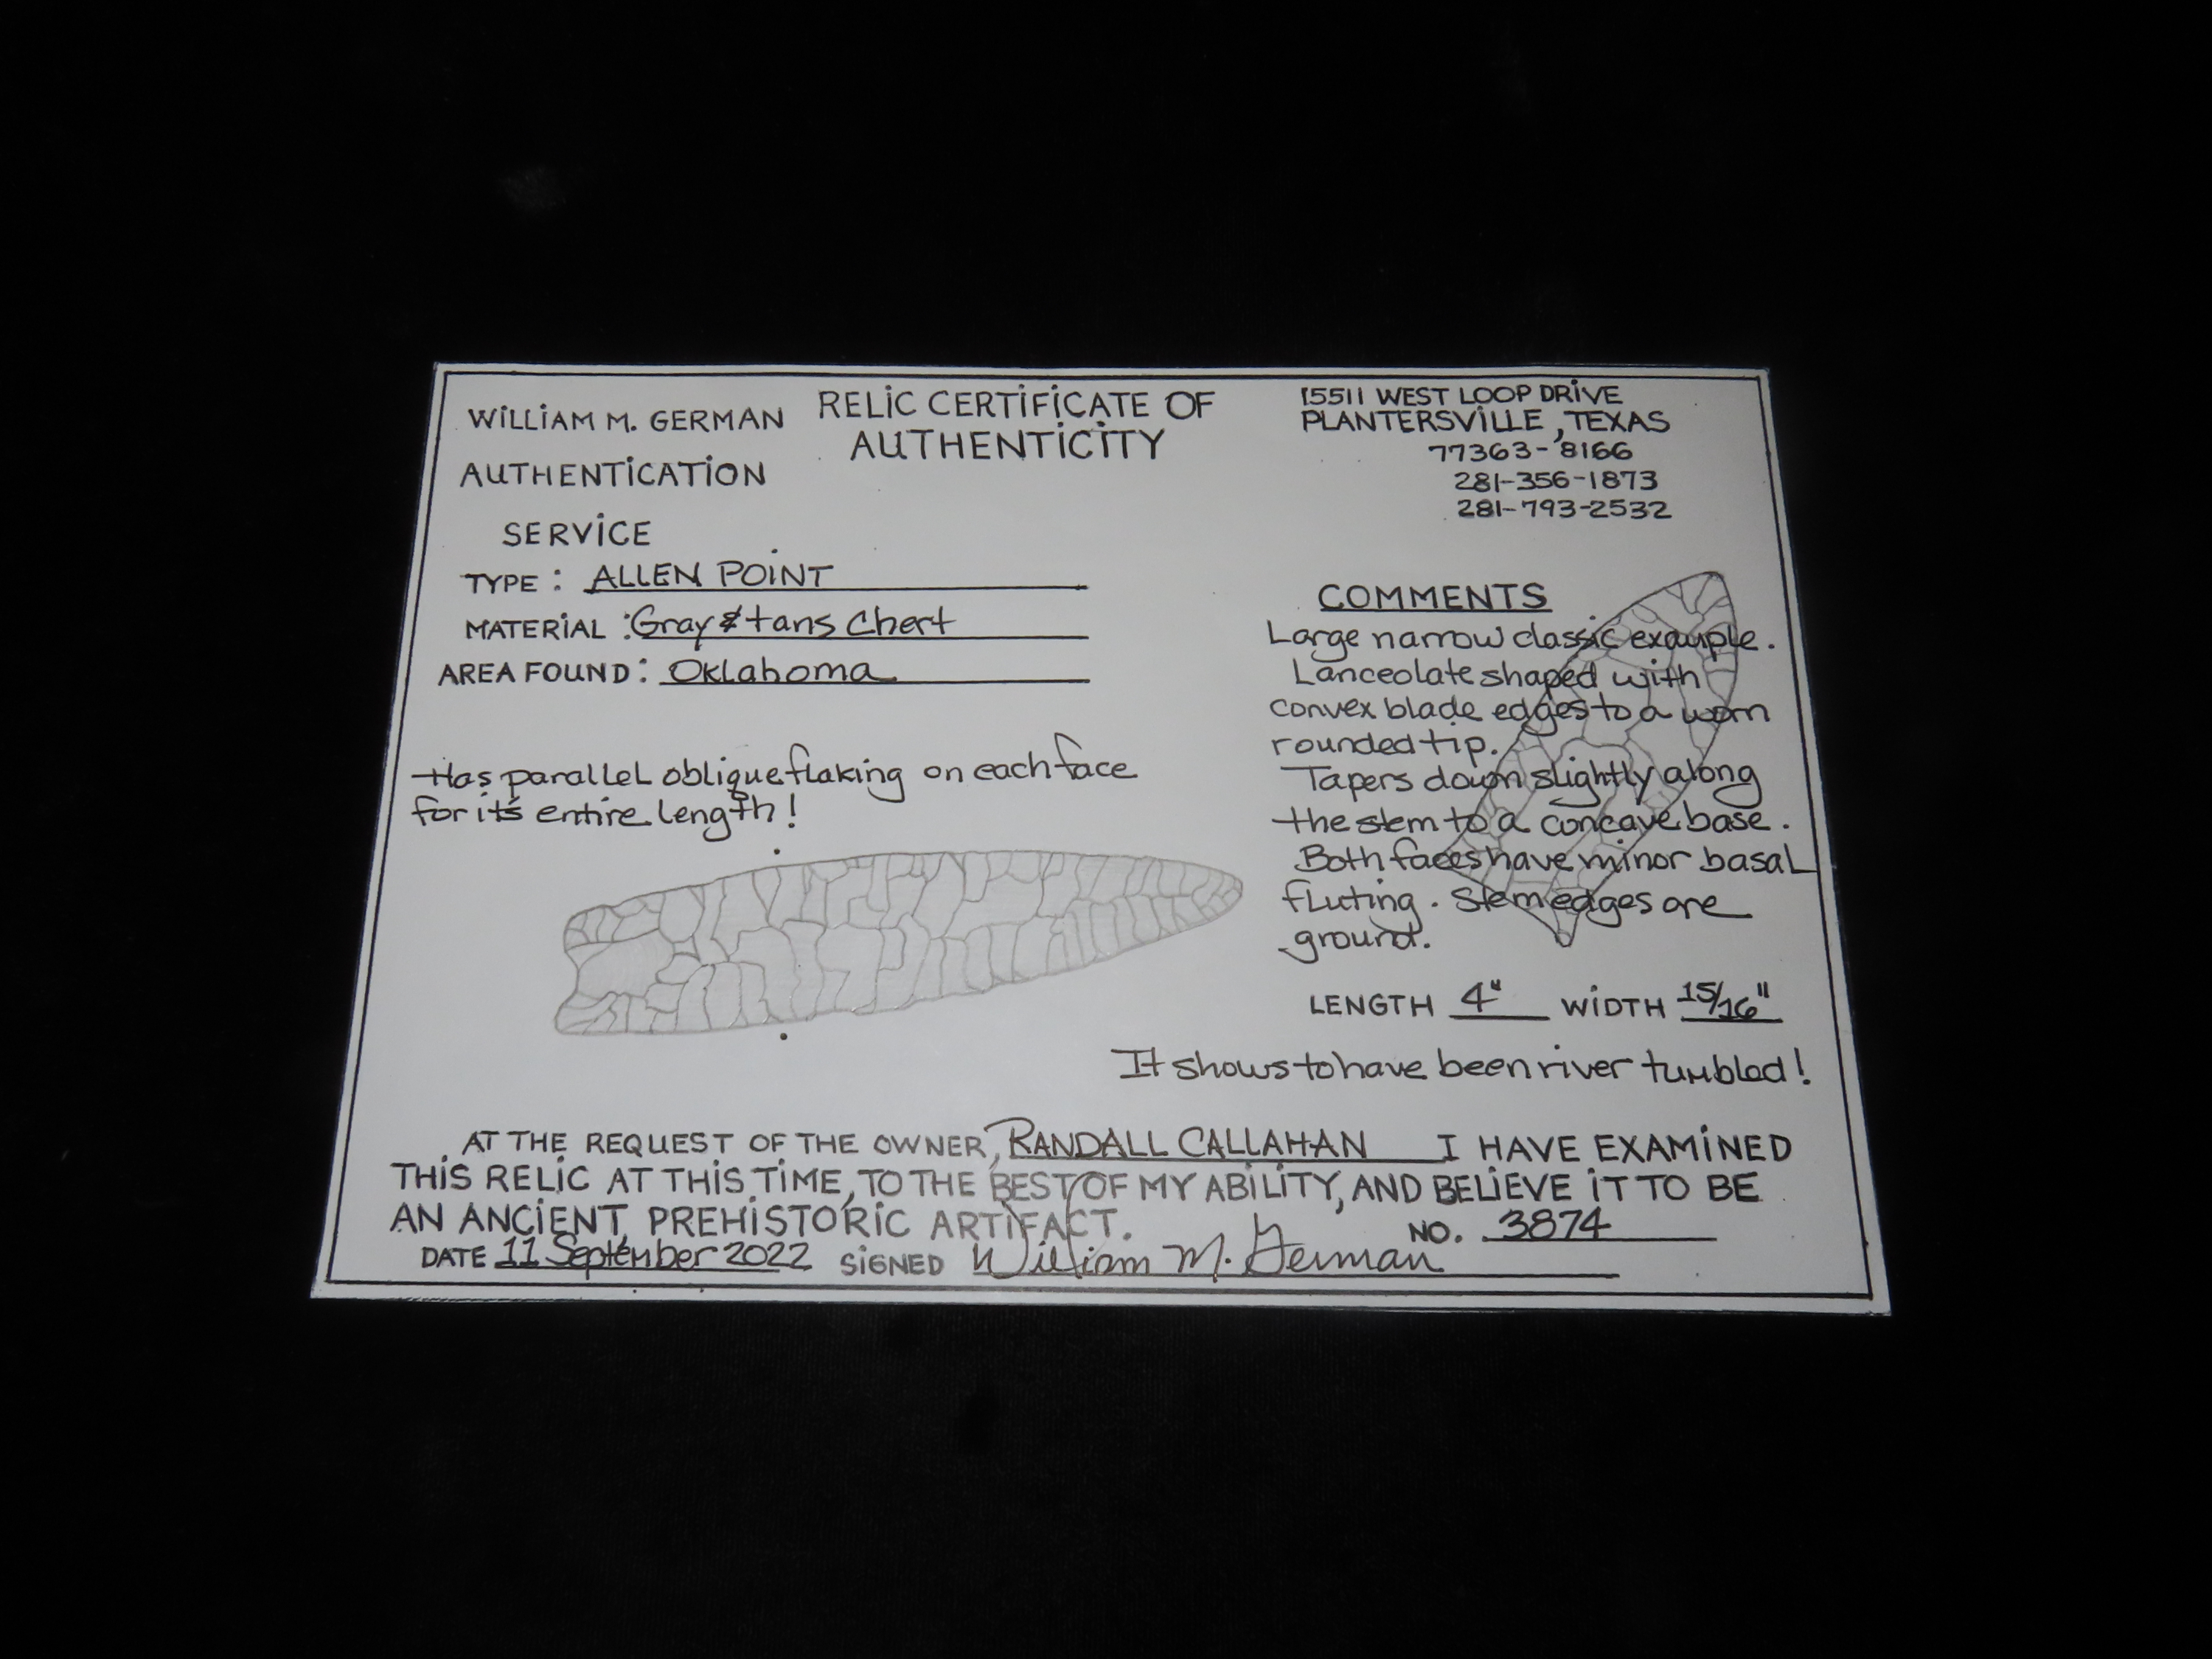 WILLIAM M. GERMAN
AUTHENTICATION
SERVICE
RELIC CERTIFICATE OF
AUTHENTICITY
15511 WEST LOOP DRIVE
PLANTERSVILLE, TEXAS
77363-8166
281-356-1873
281-793-2532
TYPE: ALLEN POINT
MATERIAL: Gray & tans Chert
AREA FOUND: Oklahoma
Has parallel oblique flaking on each face
for it's entire length!
COMMENTS
Large narrow classic example.
Lanceolate shaped with
convex blade edges to a worn
rounded tip.
Tapers down slightly along
the stem to a concave base.
Both faces have minor basal
fluting. Stem edges are
ground.
LENGTH 4" WIDTH 15/16"
It shows to have been river tumbled!
AT THE REQUEST OF THE OWNER, RANDALL CALLAHAN I HAVE EXAMINED
THIS RELIC AT THIS TIME, TO THE BEST OF MY ABILITY, AND BELIEVE IT TO BE
AN ANCIENT, PREHISTORIC ARTIFACT. NO. 3874
DATE 11 September 2022 SIGNED William M. German